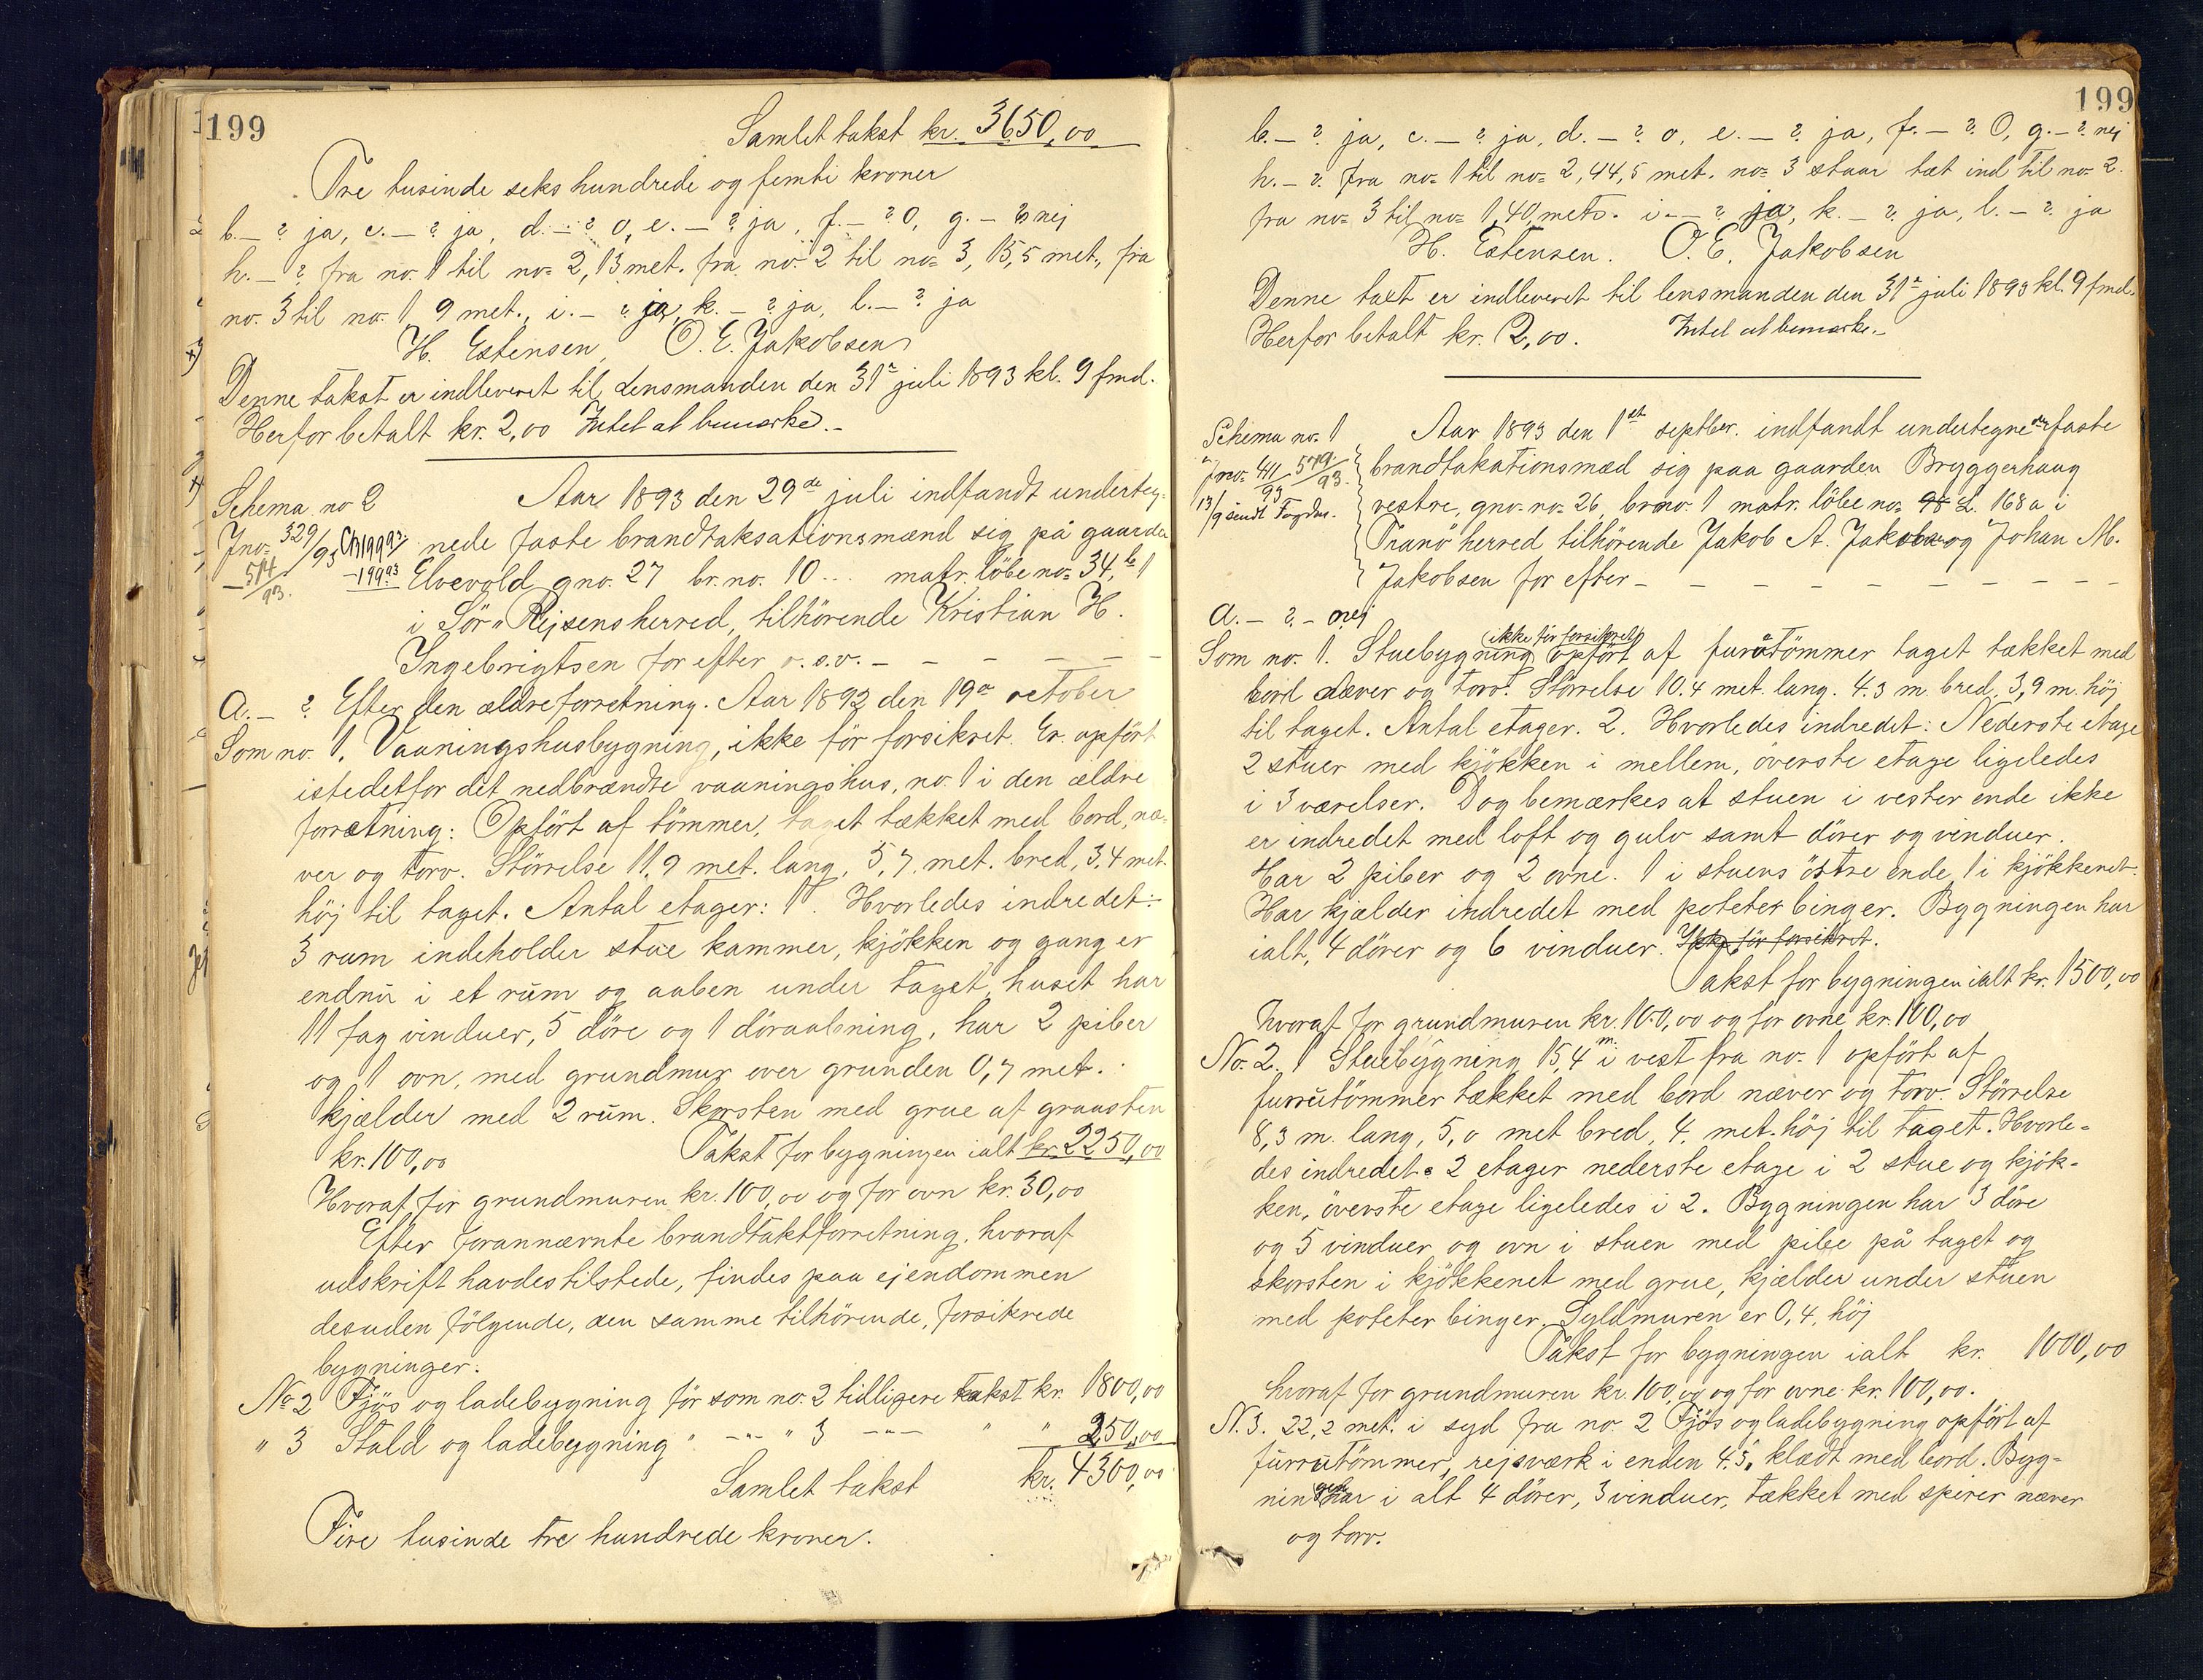 199
Samlet takst kr. 3650,00
Tre tusinde seks hundrede og femti kroner
b. – ? ja, c. – ? ja, d. – ? 0, e. – ? ja, f. – ? 0, g. – ? nej
h. – ? fra no. 1 til no= 2, 13 met. fra no. 2 til no= 3, 15,5 met., fra
no. 3 til no. 1, 9 met., i. – ? ja, k. – ? ja, l. – ? ja
H. Estensen, O. E. Jakobsen
Denne takst er indleveret til Lensmanden den 31te juli 1893 kl. 9 fmd.
Herfor betalt kr. 2,00 Intet at bemærke. –
Schema no 2 Aar 1893 den 29de juli indfandt underteg-
Jno= 329/93 nede faste brandtaksationsmænd sig på gaarden
514/93 Elvevold gno. 27 br. no. 10 ... matr. löbe no= 34, b 1
i Sör„Rejsens herred, tilhörende Kristian H.
Ingebrigtsen for efter o. s. v. – – – – – –
A. – ? Efter den ældre forretning. Aar 1892 den 19de october
Som no. 1. Vaaningshusbygning, ikke för forsikret. Er opfört
istedetfor det nedbrændte vaaningshus, no. 1 i den ældre
forretning: Opfört af tömmer, taget tækket med bord, næ-
ver og torv. Störrelse 11,9 met. lang, 5,7 met. bred, 3,4 met.
höj til taget. Antal etager: 1. Hvorledes indredet:
3 rum indeholder stue kammer, kjökken og gang er
endnu i et rum og aaben under taget, huset har
11 fag vinduer, 5 döre og 1 döraabning, har 2 piber
og 1 ovn, med grundmur over grunden 0,7 met.
kjælder med 2 rum. Skorsten med grue af graasten
kr. 100,00 Takst for bygningen ialt kr. 2250,00
Hvoraf for grundmuren kr. 100,00 og for ovn kr. 30,00
Efter forannævnte brandtakstforretning, hvoraf
udskrift havdes tilstede, findes paa ejendommen
desuden fölgende, den samme tilhörende, forsikrede
bygninger:
No 2 Fjös og ladebygning för som no. 2 tidligere takst kr. 1800,00
" 3 Stald og ladebygning " –"– " 3 –"– " " 250,00
Samlet takst kr. 4300,00
Fire tusinde tre hundrede kroner.
199
b. – ? ja, c. – ? ja, d. – ? 0, e. – ? ja, f. – ? 0, g. – ? nej
h. – ? fra no= 1 til no= 2, 44,5 met. no= 3 staar tæt ind til no= 2.
fra no= 3 til no= 1, 40 metr. i – – ? ja, k. – ? ja, l. – ? ja
H. Estensen. O. E. Jakobsen
Denne taxt er indleveret til lensmanden den 31te juli 1893 kl. 9 fmd.
Herfor betalt kr. 2,00. Intet at bemærke. –
Schema no. 1 Aar 1893 den 1st septbr. indfandt undertegnede faste
Jno= 411/93 579/93. brandtakationsmæd sig paa gaarden Bryggerhaug
13/9 sendt Fogden. vestre, gno. no= 26, br no. 1 matr. löbe no= 98 L. 168 a i
Tranö herred tilhörende Jakob A. Jakobs og Johan M.
Jakobsen for efter – – – – – – – – –
a. – ? – nej
ikke för forsikret
Som no. 1. Stuebygning opfört af furutömmer taget tækket med
bord næver og torv. Störrelse 10.4 met. lang. 4.3 m. bred, 3,9 m. höj
til taget. Antal etager. 2. Hvorledes indredet: Nederste etage
2 stuer med kjökken i mellem, överste etage ligeledes
i 3 værelser. Dog bemærkes at stuen i vester ende ikke
er indredet med loft og gulv samt dörer og vinduer.
Har 2 piber og 2 ovne. 1 i stuens östre ende, 1 i kjökkenet.
Har kjælder indredet med poteter binger. Bygningen har
ialt, 4 dörer og 6 vinduer. Ikke för forsikret.
Takst for bygningen ialt kr. 1500,00
hvoraf for grundmuren kr. 100,00 og for ovne kr. 100,00
No. 2. 1 Stuebygning 15,4 m. i vest fra no. 1 opfört af
furrutömmer tækket med bord næver og torv. Störrelse
8,3 m. lang, 5,0 met bred, 4. met. höj til taget. Hvorle-
des indredet: 2 etager nederste etage i 2 stue og kjök-
ken, överste etage ligeledes i 2. Bygningen har 3 döre
og 5 vinduer og ovn i stuen med pibe på taget og
skorsten i kjökkenet med grue, kjælder under stuen
med poteter binger. Syldmuren er 0,4. höj
Takst for bygningen ialt kr. 1000,00
hvoraf for grundmuren kr. 100,00 og for ovne kr. 100,00.
N. 3. 22,2 met. i syd fra no. 2 Fjös og ladebygning opfört af
furrutömmer, rejsværk i enden 4.5, klædt med bord. Byg-
ningen har i alt 4 dörer, 3 vinduer, tækket med spirer næver
og torv.